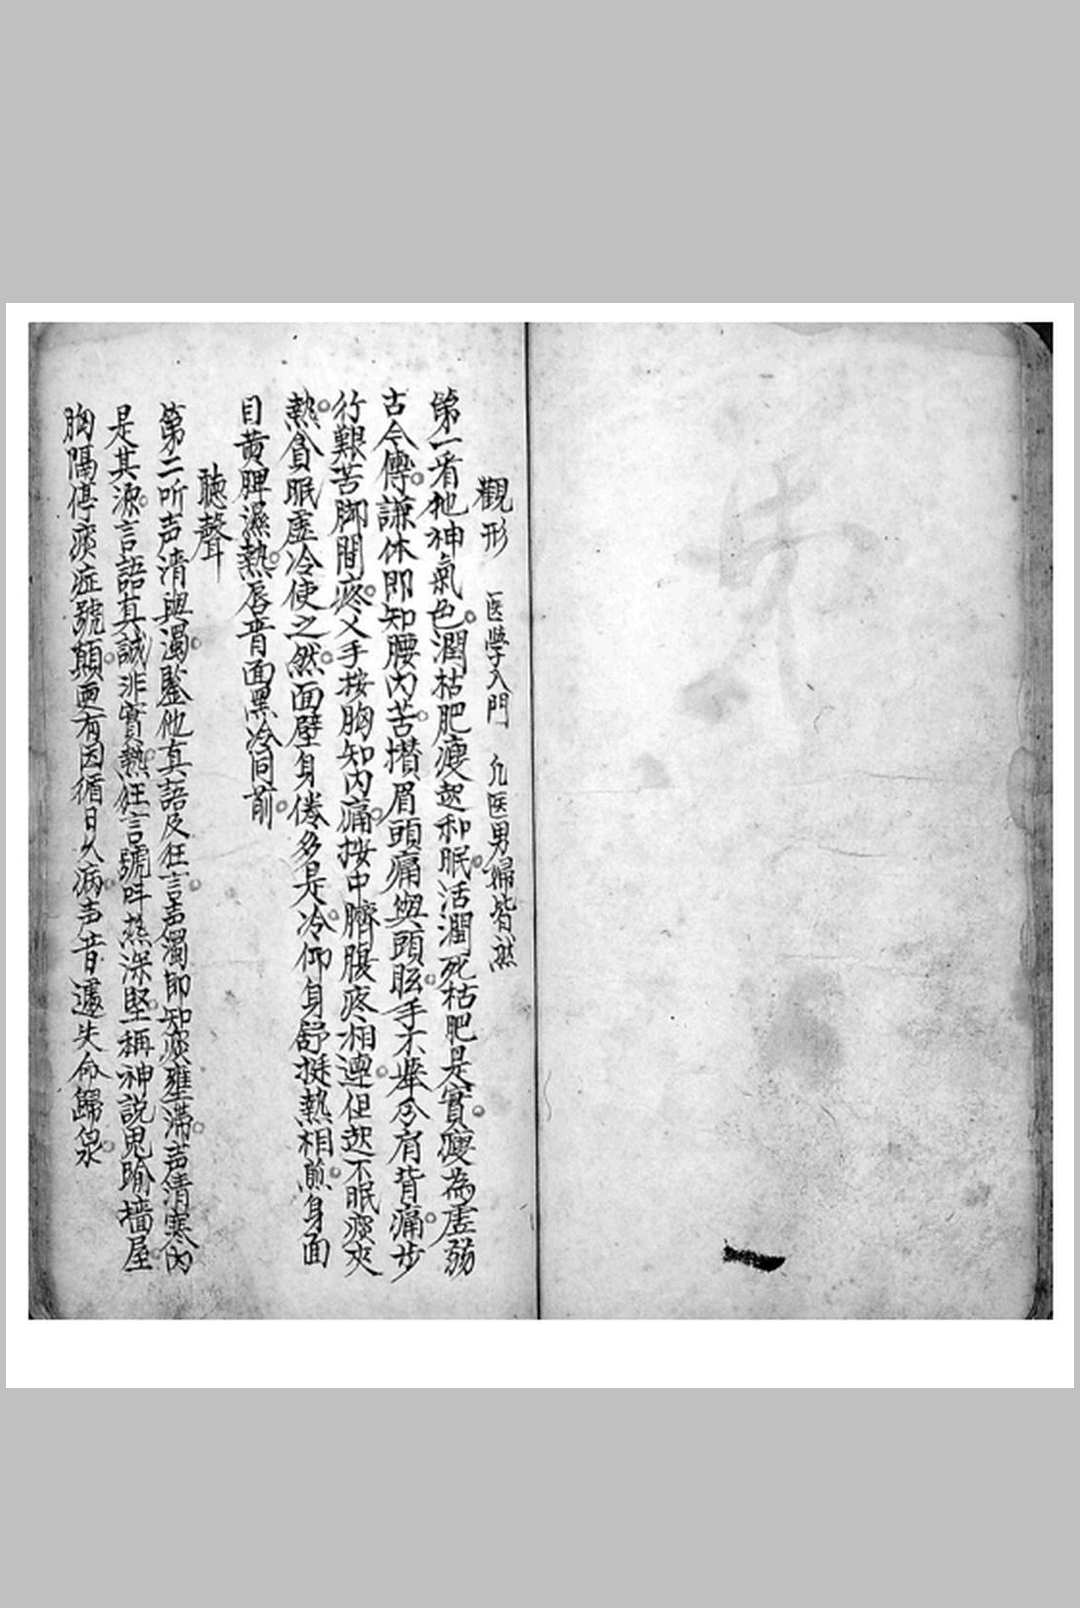 觀形 医學入門 凢医男婦皆然
第一看他神氣色潤枯肥瘦起和眠活潤死枯肥是實瘦為虛弱
古今傳謙体即知腰內苦攢眉頭痛與頭眩手不舉兮肩背痛步
行艱苦脚間疼叉手按胸知內痛按中臍腹疼相連但起不眠痰夾
熱貪眠虛冷使之然面壁身倦多是冷仰身舒挺熱相煎身面
目黄脾濕熱唇青面黑冷同前
聽聲
第二听声清與濁鑒他真語及狂言声濁即知痰壅滯声清寒內
是其源言語真誠非實熱狂言號呌熱深堅稱神說鬼踰墻屋
胸隔停痰症號顛更有因循日久病声音遽失命歸泉